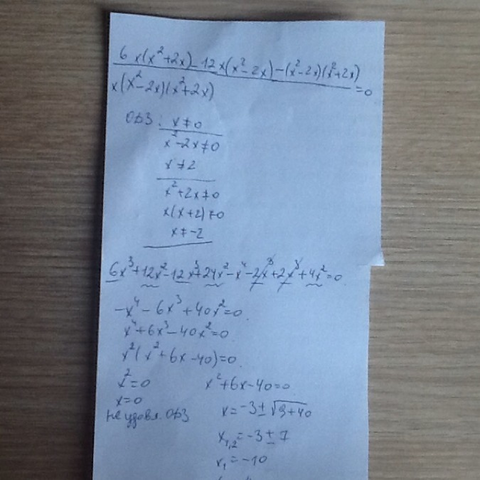 6x(x²+2x)-12x(x²-2x)-(x²-2x)(x²+2x)
x(x²-2x)(x²+2x) =0
ОДЗ: x≠0
x²-2x≠0
x≠2
x²+2x≠0
x(x+2)≠0
x≠-2
6x³+12x²-12x³+24x²-x⁴-2x³+2x³+4x²=0.
-x⁴-6x³+40x²=0.
x⁴+6x³-40x²=0.
x²(x²+6x-40)=0.
x²=0 x²+6x-40=0
x=0 x=-3±√9+40
не удовл. ОДЗ x₁,₂=-3±7
x₁=-10